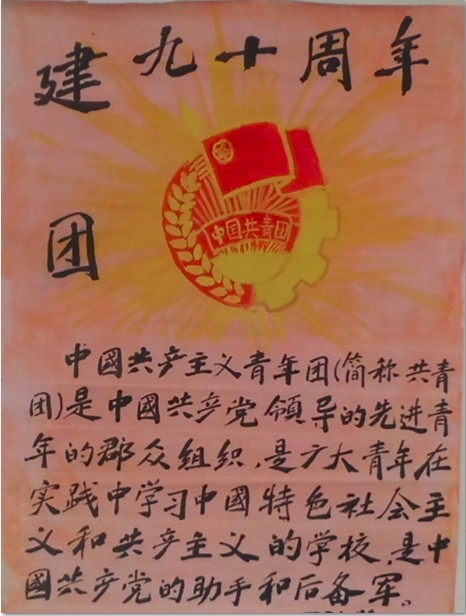 建九十周年
团
中国共青团
中國共产主义青年团(简称共青
团)是中國共产党领导的先进青
年的群众组织,是广大青年在
实践中学习中國特色社会主
义和共产主义的学校,是中
國共产党的助手和后备军。